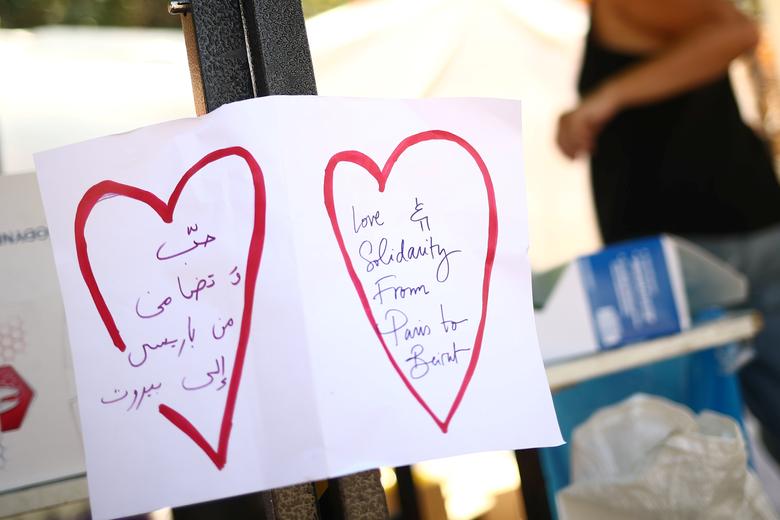 حبّ
و تضامن
من باريس
إلى بيروت
Love &
Solidarity
From
Paris to
Beirut